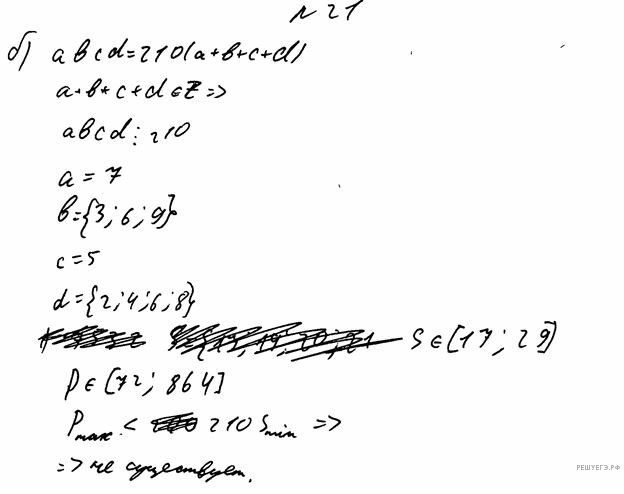 № 21
б) abcd=210(a+b+c+d)
a+b+c+d∈Z =>
abcd⋮210
a = 7
b={3; 6; 9}
c = 5
d={2; 4; 6; 8}
S ∈ [17; 29]
P ∈ [72; 864]
Pmax < 210 Smin =>
=> не существует.
РЕШУЕГЭ.РФ